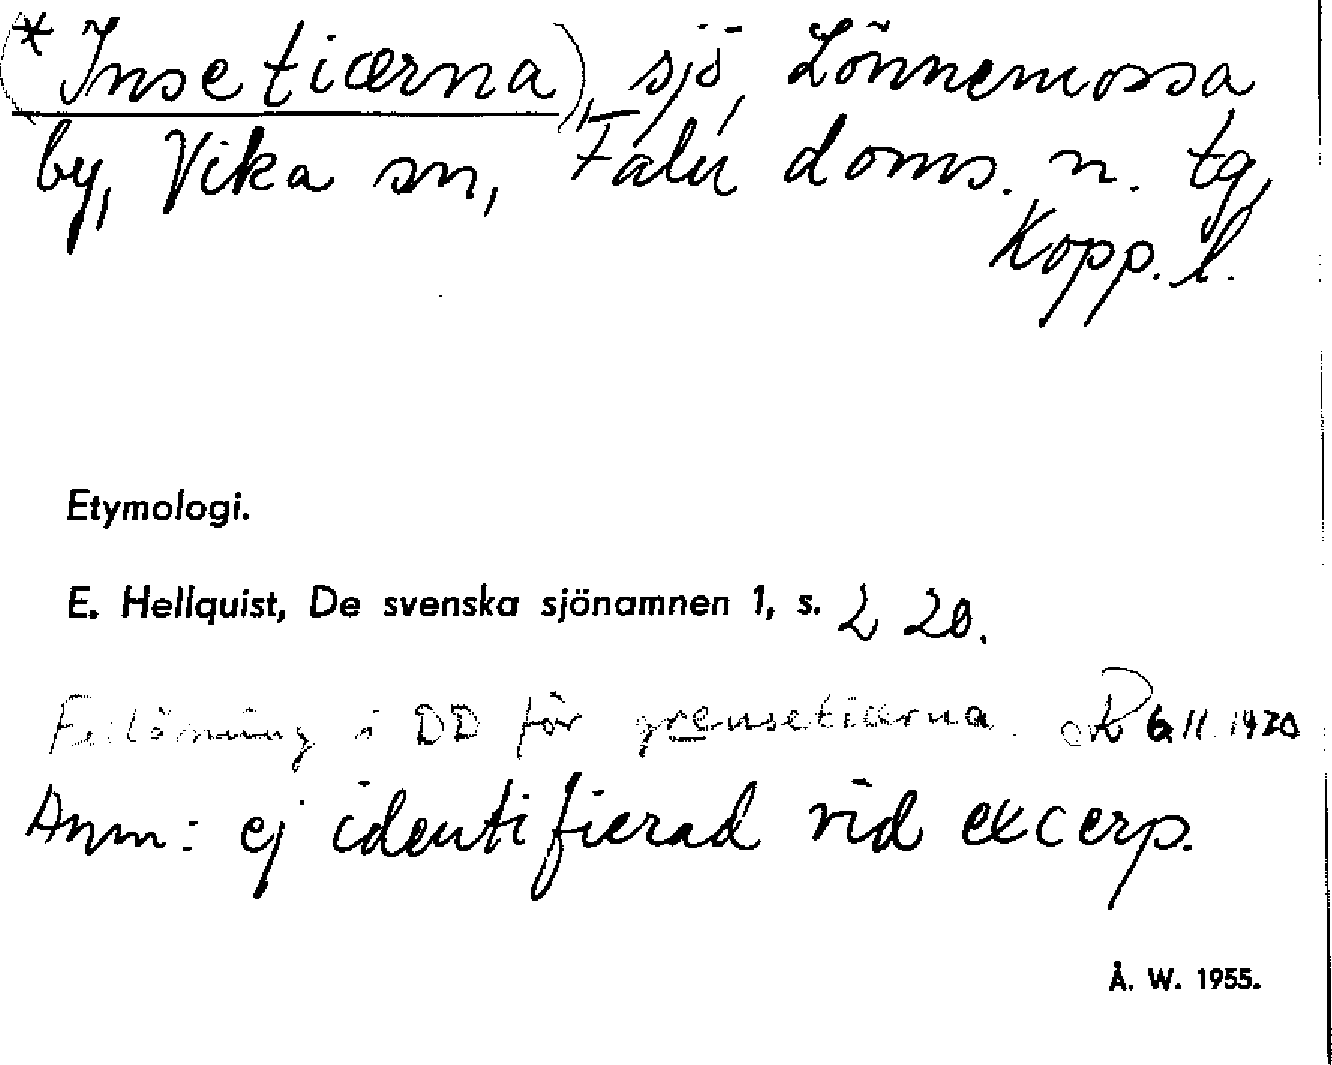 (*Insetiærna), sjö, Lönnemossa
by, Vika sn, Falu doms. n. tg,
Kopp. l.
Etymologi.
E. Hellquist, De svenska sjönamnen 1, s. 220.
Felläsning i DD för grensetiærna. 6.11.1920
Anm: ej identifierad vid excerp.
Å. W. 1955.